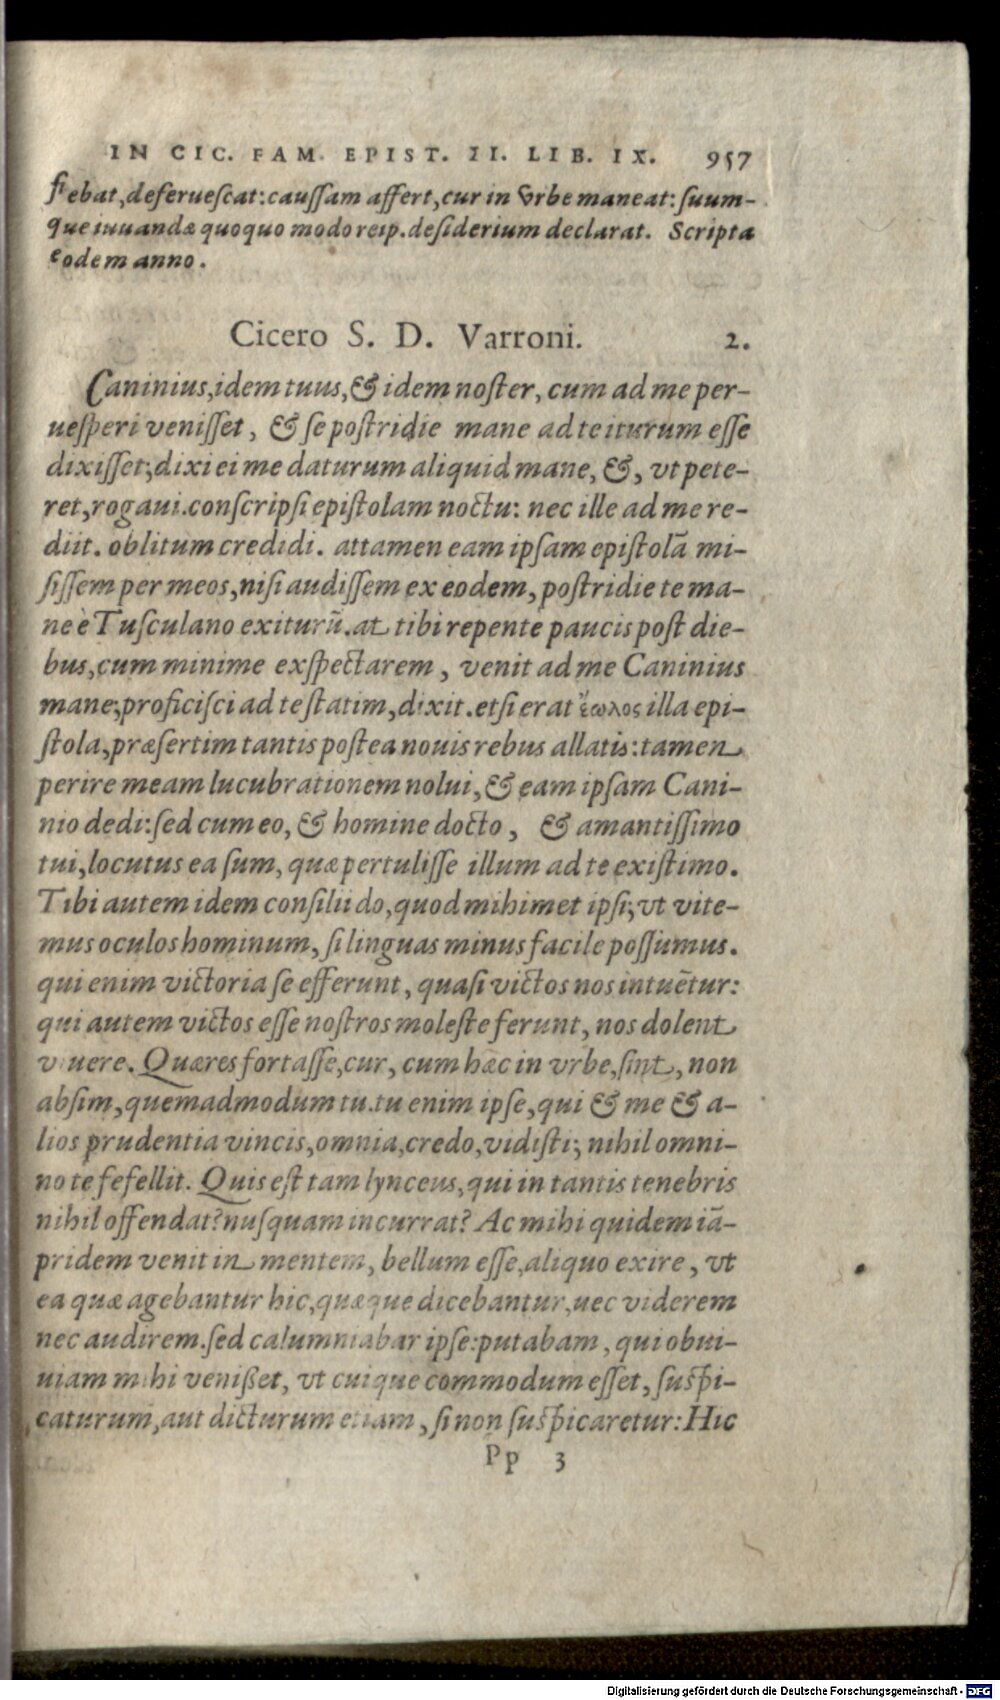 IN CIC. FAM. EPIST. II. LIB. IX. 957
fiebat, deferuescat: caussam affert, cur in Vrbe maneat: suum-
que iuuandæ quoquo modo reip. desiderium declarat. Scripta
eodem anno.
Cicero S. D. Varroni. 2.
Caninius, idem tuus, & idem noster, cum ad me per-
uesperi venisset, & se postridie mane ad te iturum esse
dixisset; dixi ei me daturum aliquid mane, &, vt pete-
ret, rogaui. conscripsi epistolam noctu: nec ille ad me re-
diit. oblitum credidi. attamen eam ipsam epistolā mi-
sissem per meos, nisi audissem ex eodem, postridie te ma-
ne è Tusculano exiturū. at tibi repente paucis post die-
bus, cum minime exspectarem, venit ad me Caninius
mane; proficisci ad te statim, dixit. etsi erat ἕωλος illa epi-
stola, præsertim tantis postea nouis rebus allatis: tamen
perire meam lucubrationem nolui, & eam ipsam Cani-
nio dedi: sed cum eo, & homine docto, & amantissimo
tui, locutus ea sum, quæ pertulisse illum ad te existimo.
Tibi autem idem consilii do, quod mihimet ipsi; vt vite-
mus oculos hominum, si linguas minus facile possumus.
qui enim victoria se efferunt, quasi victos nos intuētur:
qui autem victos esse nostros moleste ferunt, nos dolent
viuere. Quæres fortasse, cur, cum hæc in vrbe, sint, non
absim, quemadmodum tu. tu enim ipse, qui & me & a-
lios prudentia vincis, omnia, credo, vidisti; nihil omni-
no te fefellit. Quis est tam lynceus, qui in tantis tenebris
nihil offendat? nusquam incurrat? Ac mihi quidem iā-
pridem venit in mentem, bellum esse, aliquo exire, vt
ea quæ agebantur hic, quæque dicebantur, nec viderem
nec audirem. sed calumniabar ipse: putabam, qui obui-
uiam mihi venißet, vt cuique commodum esset, suspi-
caturum, aut dicturum etiam, si non suspicaretur: Hic
Pp 3
Digitalisierung gefördert durch die Deutsche Forschungsgemeinschaft - DFG